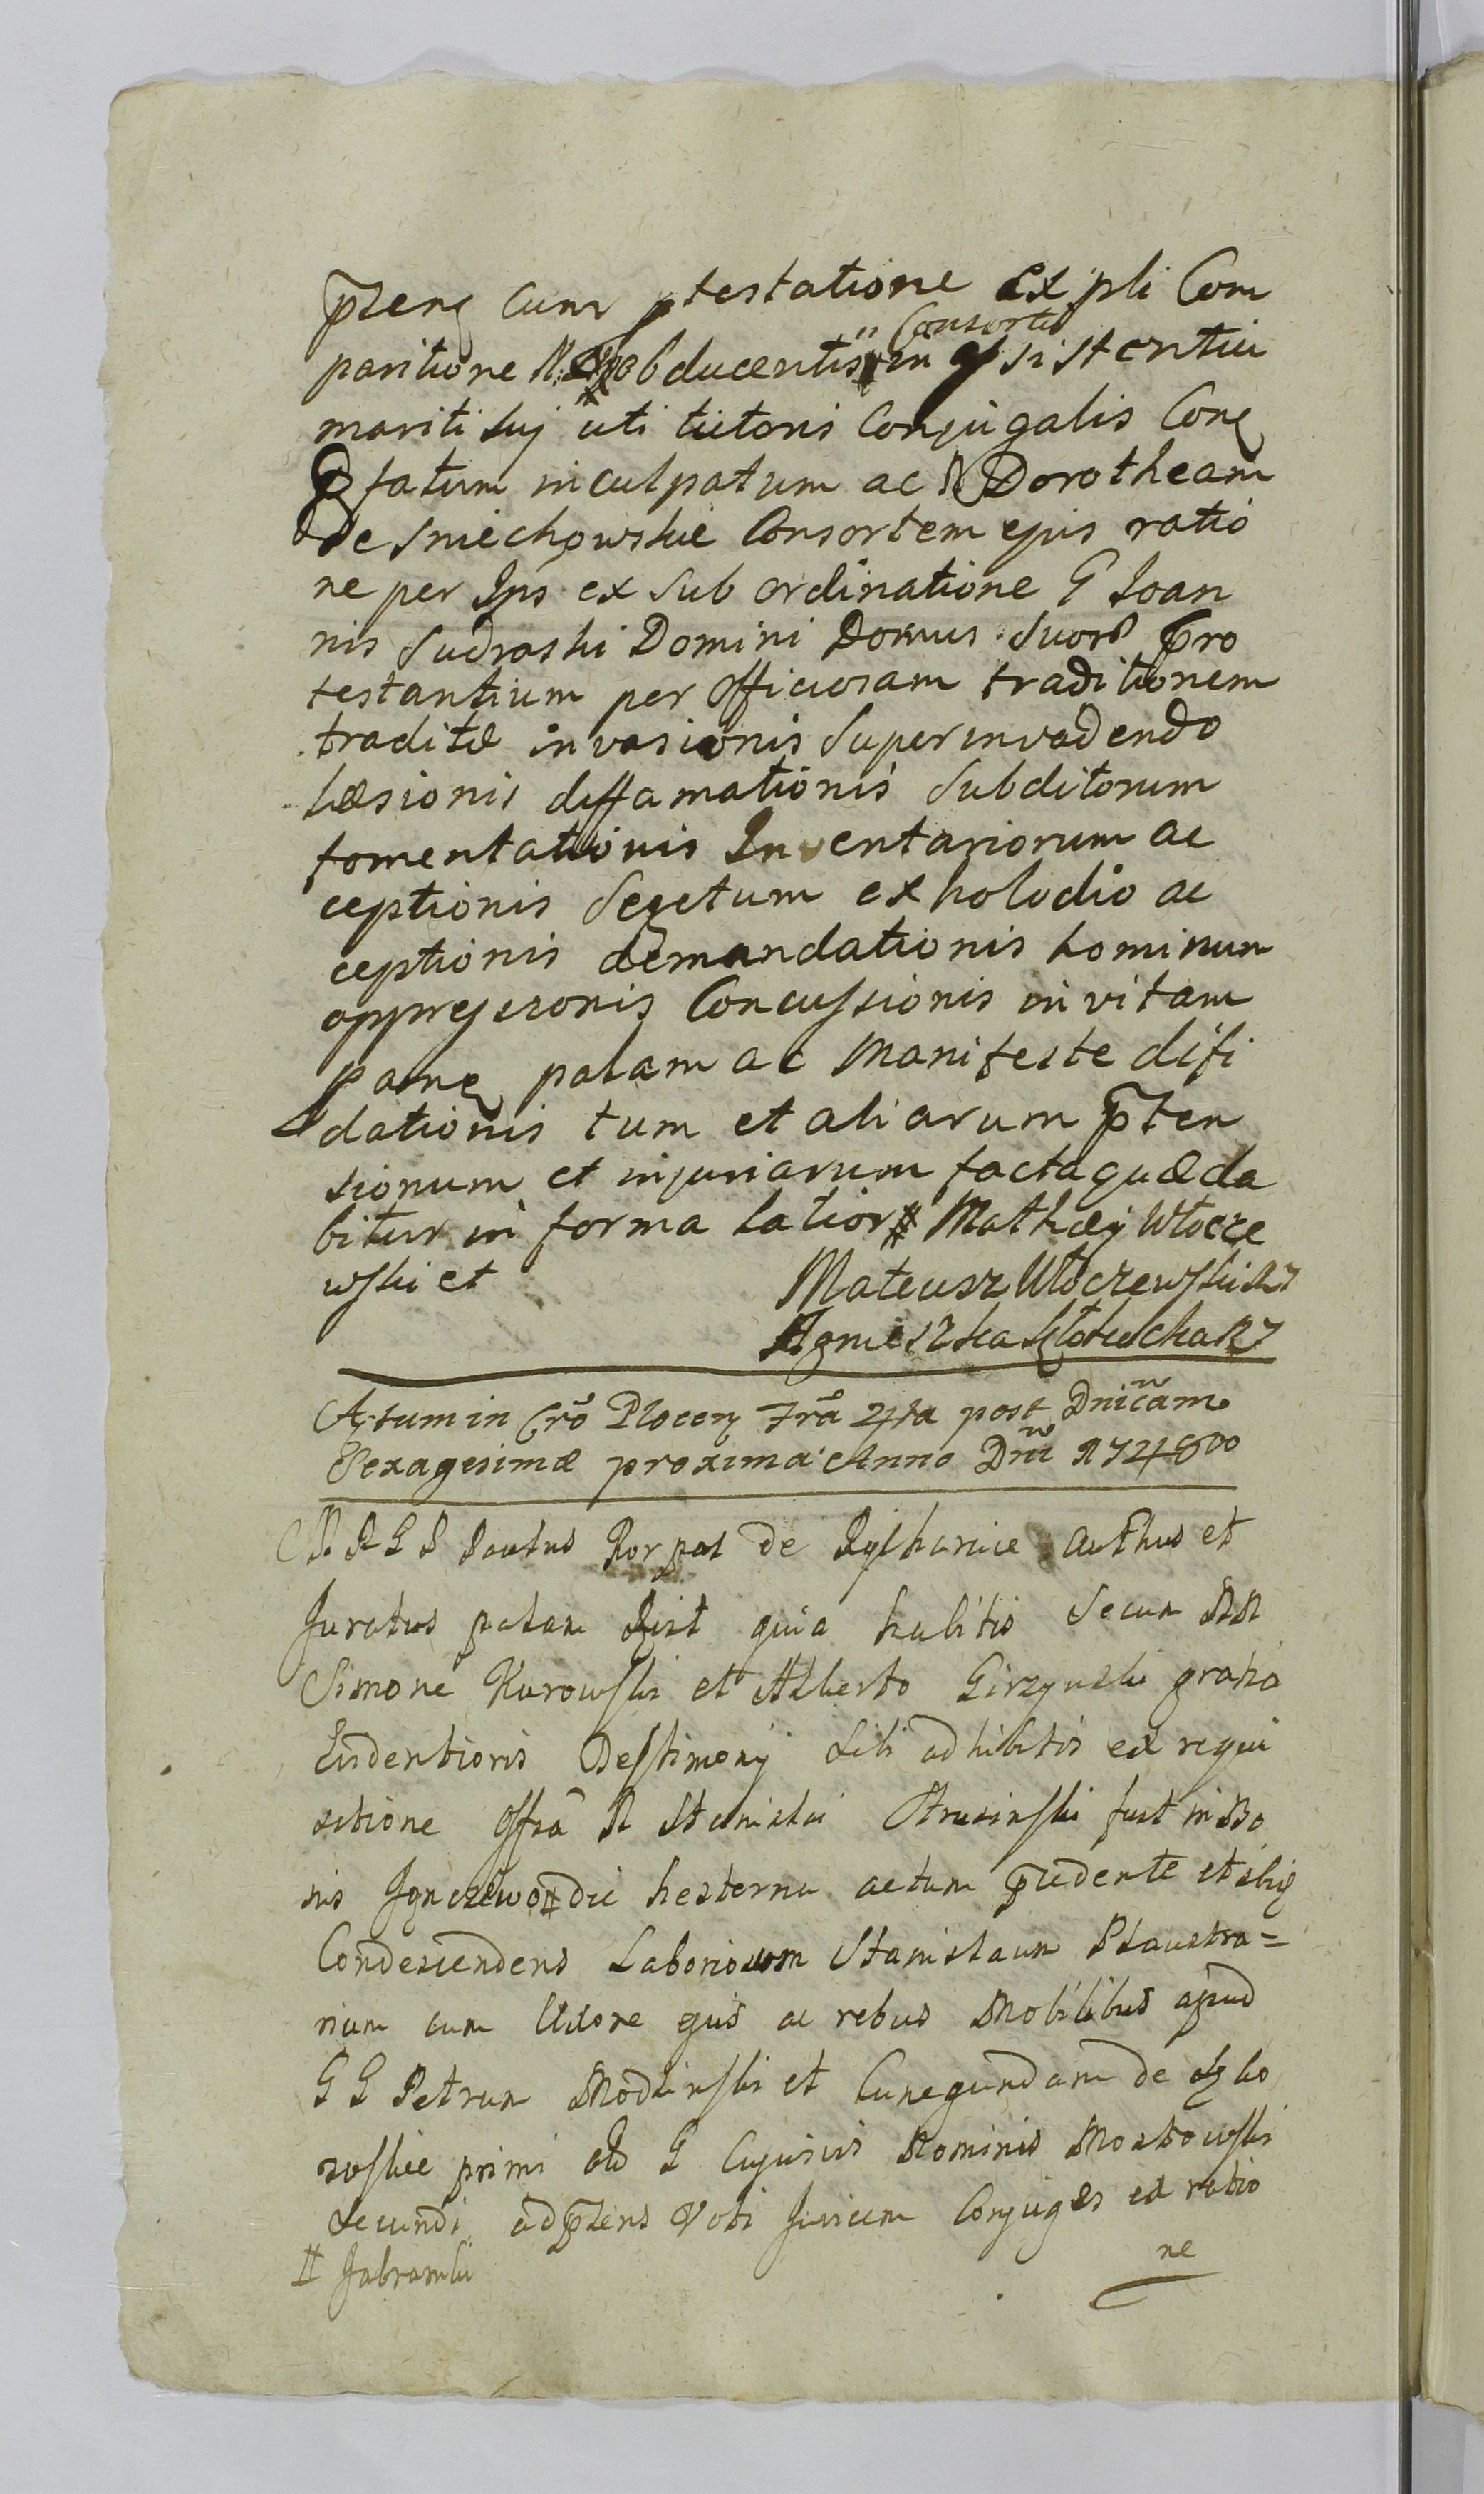 p̄teng cum ptestatione ex pli Com
paritione N obducentis in Consortis assistentia
mariti suj uti tutoris Conjugalis Cong
Pfatum inculpatum ac N Dorotheam
de Smiechowskie Consortem ejus ratio
ne per Ips ex sub ordinatione G Ioan
nis Sudraski Domini Domus suor Pro
testantium per officiosam traditionem
traditæ invasionis superinvadendo
læsionis diffamationis subditorum
fomentationis Inventariorum ac
ceptionis segetum ex holodio ac
ceptionis demandationis hominum
oppressionis Concussionis in vitam
pang palam ac Manifeste difi
dationis tum et aliarum p̄ten
sionum et injuriarum facta quæ da
bitur in forma latiori # Mathæj Włocze
wski et
Mateusz Włoczewski
Agnieszka
Actum in Cro Plocen Fra 4ta post Dnicam
Sexagesimæ proxima Anno Dni 1748vo
de authus et
Juratus palam quia habitis secum NN
Simone Kurowski et Alberto Girzynski gratia
Evidentioris Testimonij sibi adhibitis ex requi
sitione offsa N Stanislai Strusinski fuit in Bo
nis Jgnczewo # die hesterna actum p̄cedente et ibiq
Condescendens Laboriosum Stanislaum Plaustra=
rium cum Uxore ejus ac rebus Mobilibus apud
G G Petrum Modlinski et Cunegundam de
primi olim G Cujusvis Nominis Mostowski
secundi ad p̄sens Voti Jnvicem Conjuges ex ratio
ne
# Jabramki